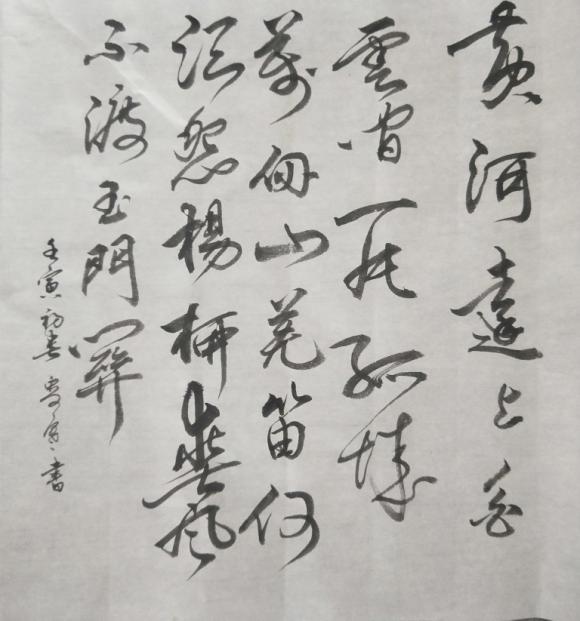 黄河遠上白
雲間一片孤城
萬仞山羌笛何
須怨楊柳春風
不渡玉門關
壬寅初春書